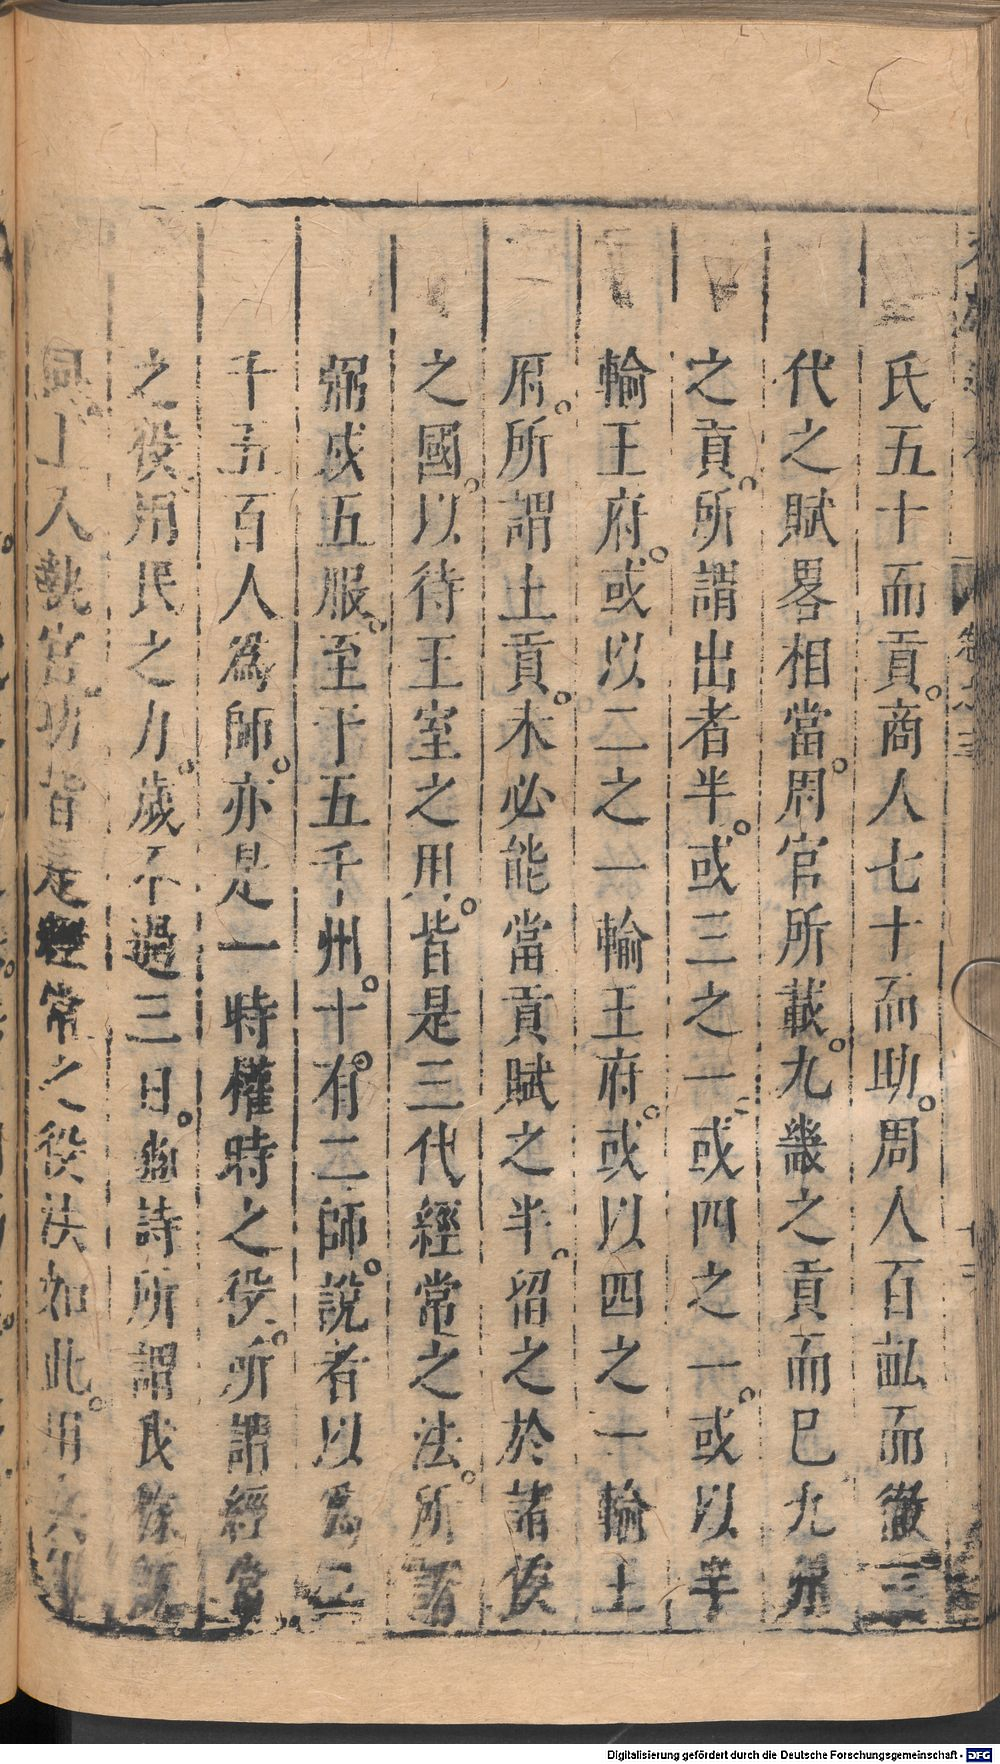 氏五十而貢。商人七十而助。周人百畆而徹三
代之賦畧相當。周官所載。九畿之貢而已九州
之貢。所謂出者半。或三之一。或四之一。或以半
輸王府。或以二之一輸王府。或以四之一輸王
府。所謂土貢。未必能當貢賦之半。留之於諸侯
之國。以待王室之用。皆是三代經常之法。所謂
弼成五服。至于五千州。十有二師。說者以爲二
千五百人為師。亦是一時權時之役。所謂經常
之役。用民之力。歲不過三日。豳詩所謂我稼既
同上入執宮功皆是經常之役法如此。用
卷
Digitalisierung gefördert durch die Deutsche Forschungsgemeinschaft - DFG